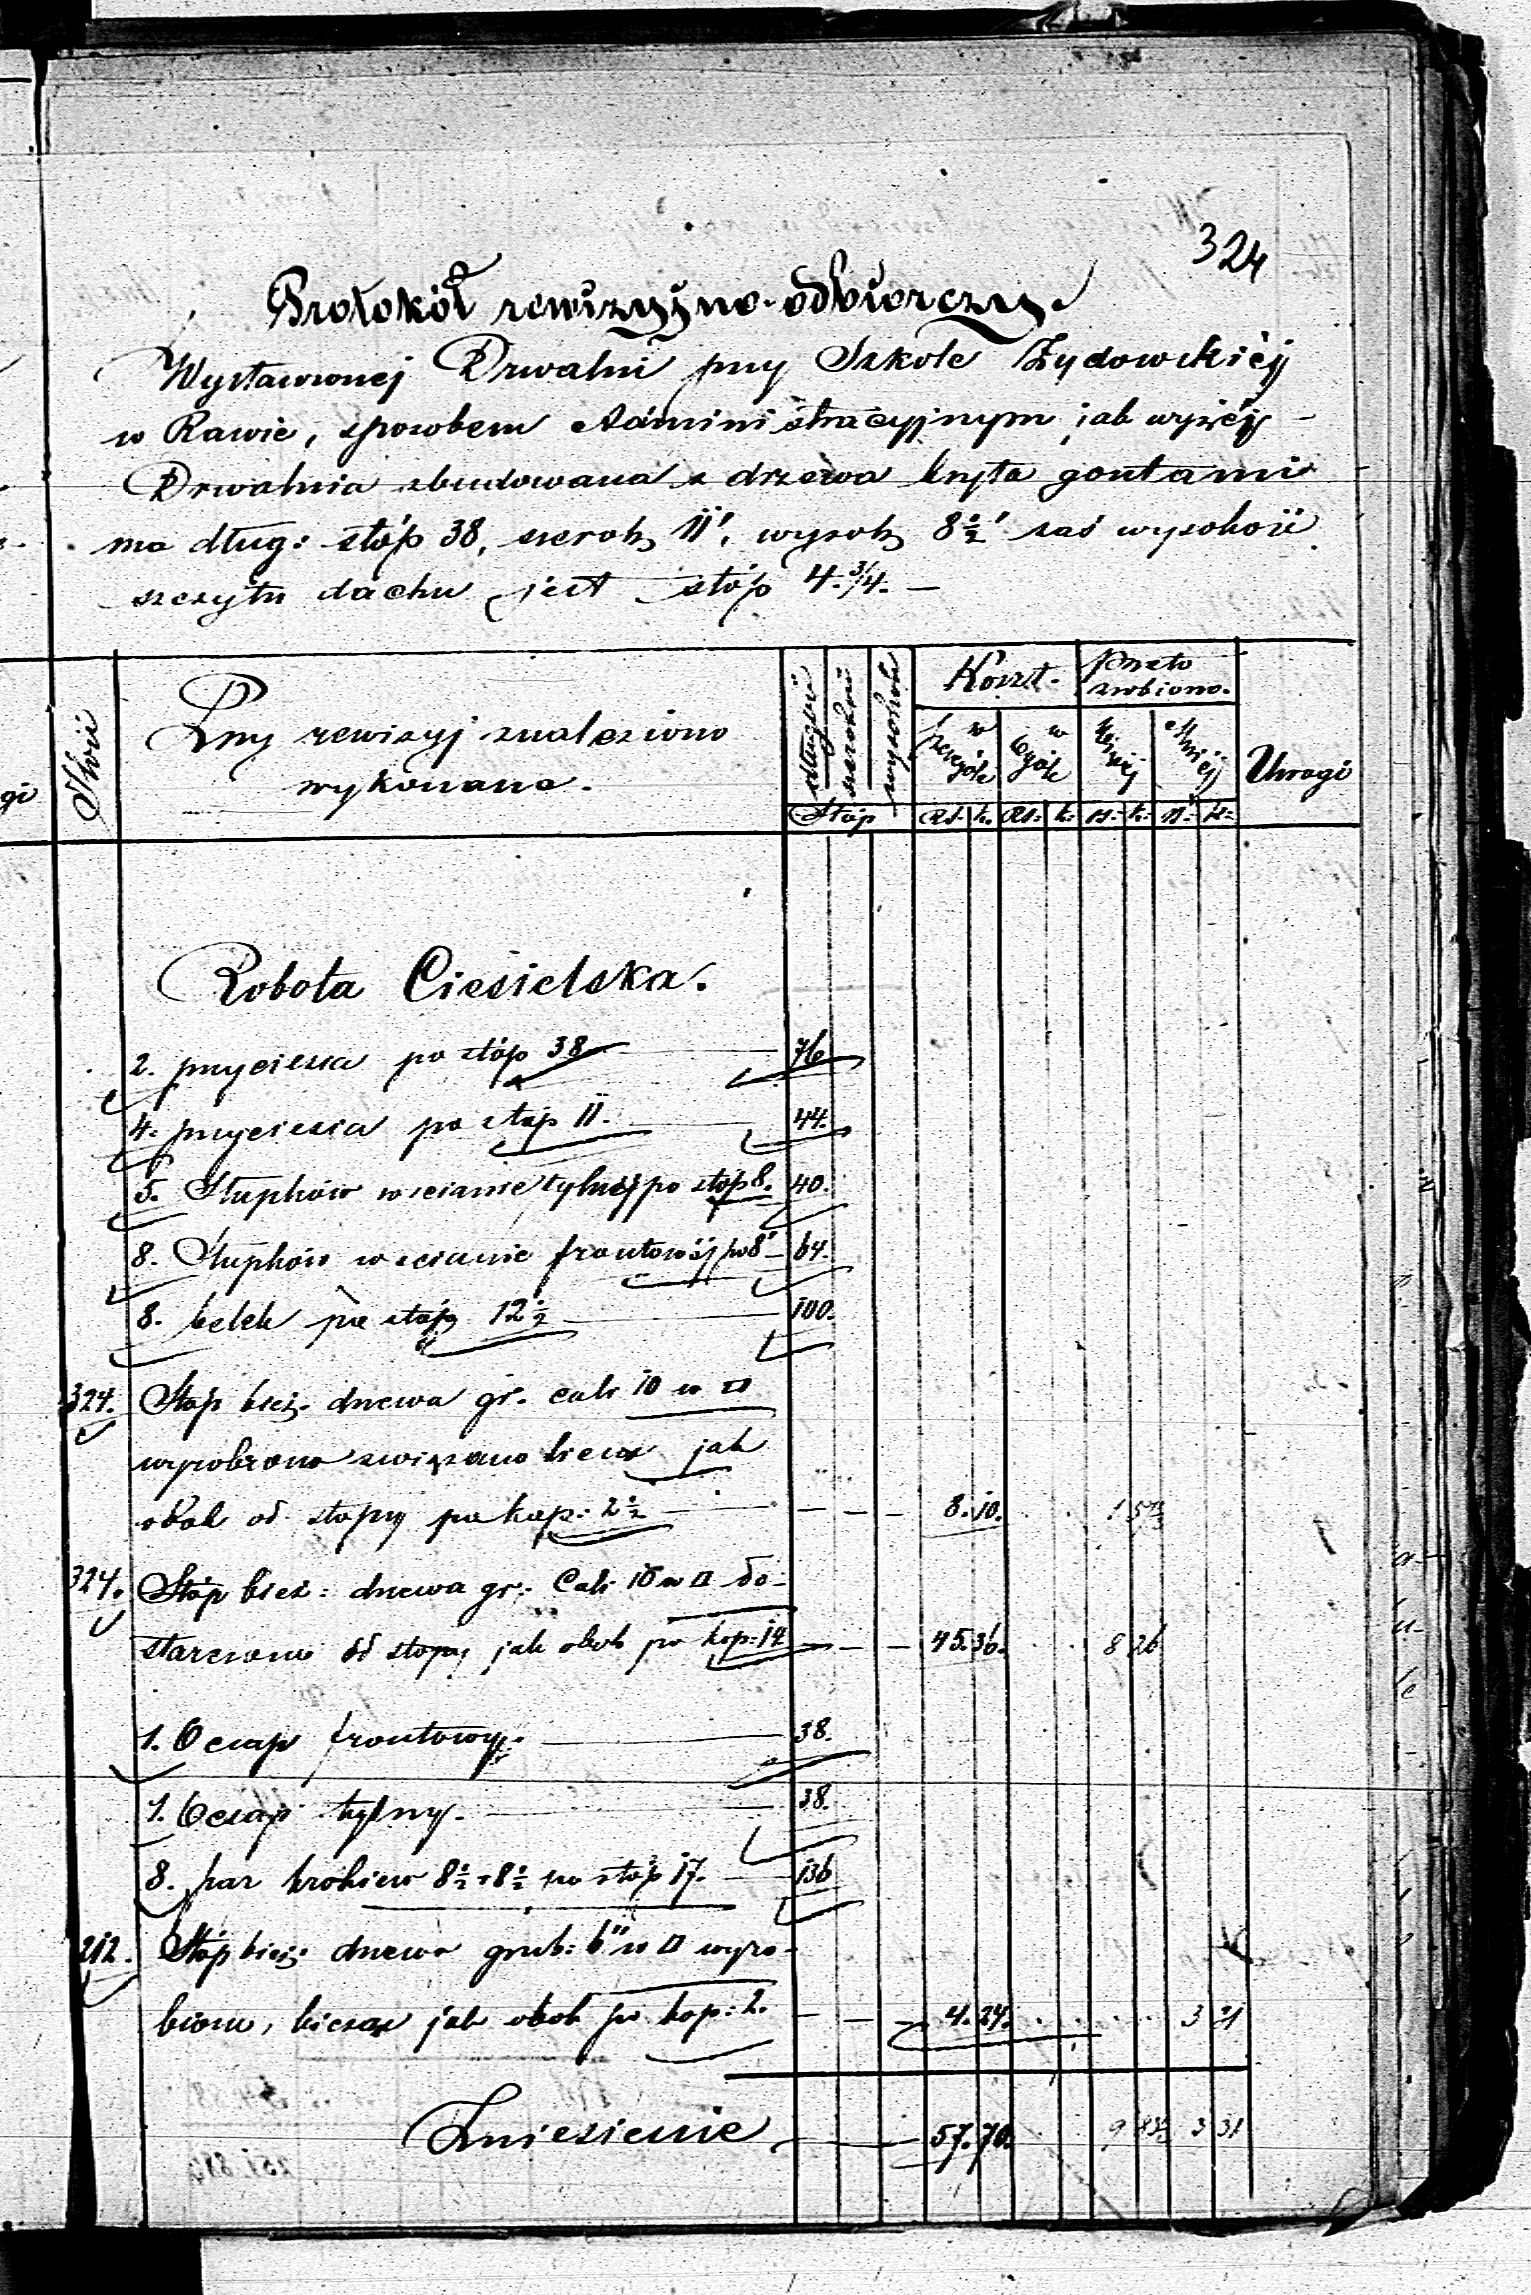 324
Protokół rewizyyno-odbiorczy.
Wystawionej Drwalni przy Szkole Żydowskiéj
w Rawie, sposobem Administracyjnym jak wyżéj –
Drwalnia zbudowana z drzewa kryta gontami
ma dług: stóp 38, szerok, 11', wysok, 8½' zaś wysokość
szczytu dachu jest stóp 4.¾. –
Ilość
Przy rewizyj znaleziono
wykonane.
długość
szerokość
wysokość
Stóp
Koszt.
w szczególe
w ogóle
Przeto zrobiono.
więcéj
mniéj
Uwagi
Rs. k. Rs: k: rs: k: rs: k:
Robota Ciesielska.
2. przyciesia po stóp 38 76
4. przyciesia po stóp 11. 44.
5. Słupków w scianie tylnéj po stóp 8. 40.
8. Słupków w scianie frontowéj po 8' 64.
8. belek po stóp 12½ 100.
324. Stóp bież. drzewa gr. cali 10 w □
wyrobiono związano licząc jak
obok od stopy po kop: 2½ – – – 8. 10.
324. Stóp bież: drzewa gr: Cali 10 w □ do-
starczono od stopy jak obok po kop: 14 – – – 45. 36. 8 26
1. Oczap frontowy. 38.
1. Oczap tylny. 38.
8. par krokiew 8½+8½ po stóp 17. 136
212. Stóp bież: drzewa grub: 6" w □ wyro-
biono, licząc jak obok po kop: 2. – – – 4. 24. 3 21
Zniesienie 57. 70. 9 3 31